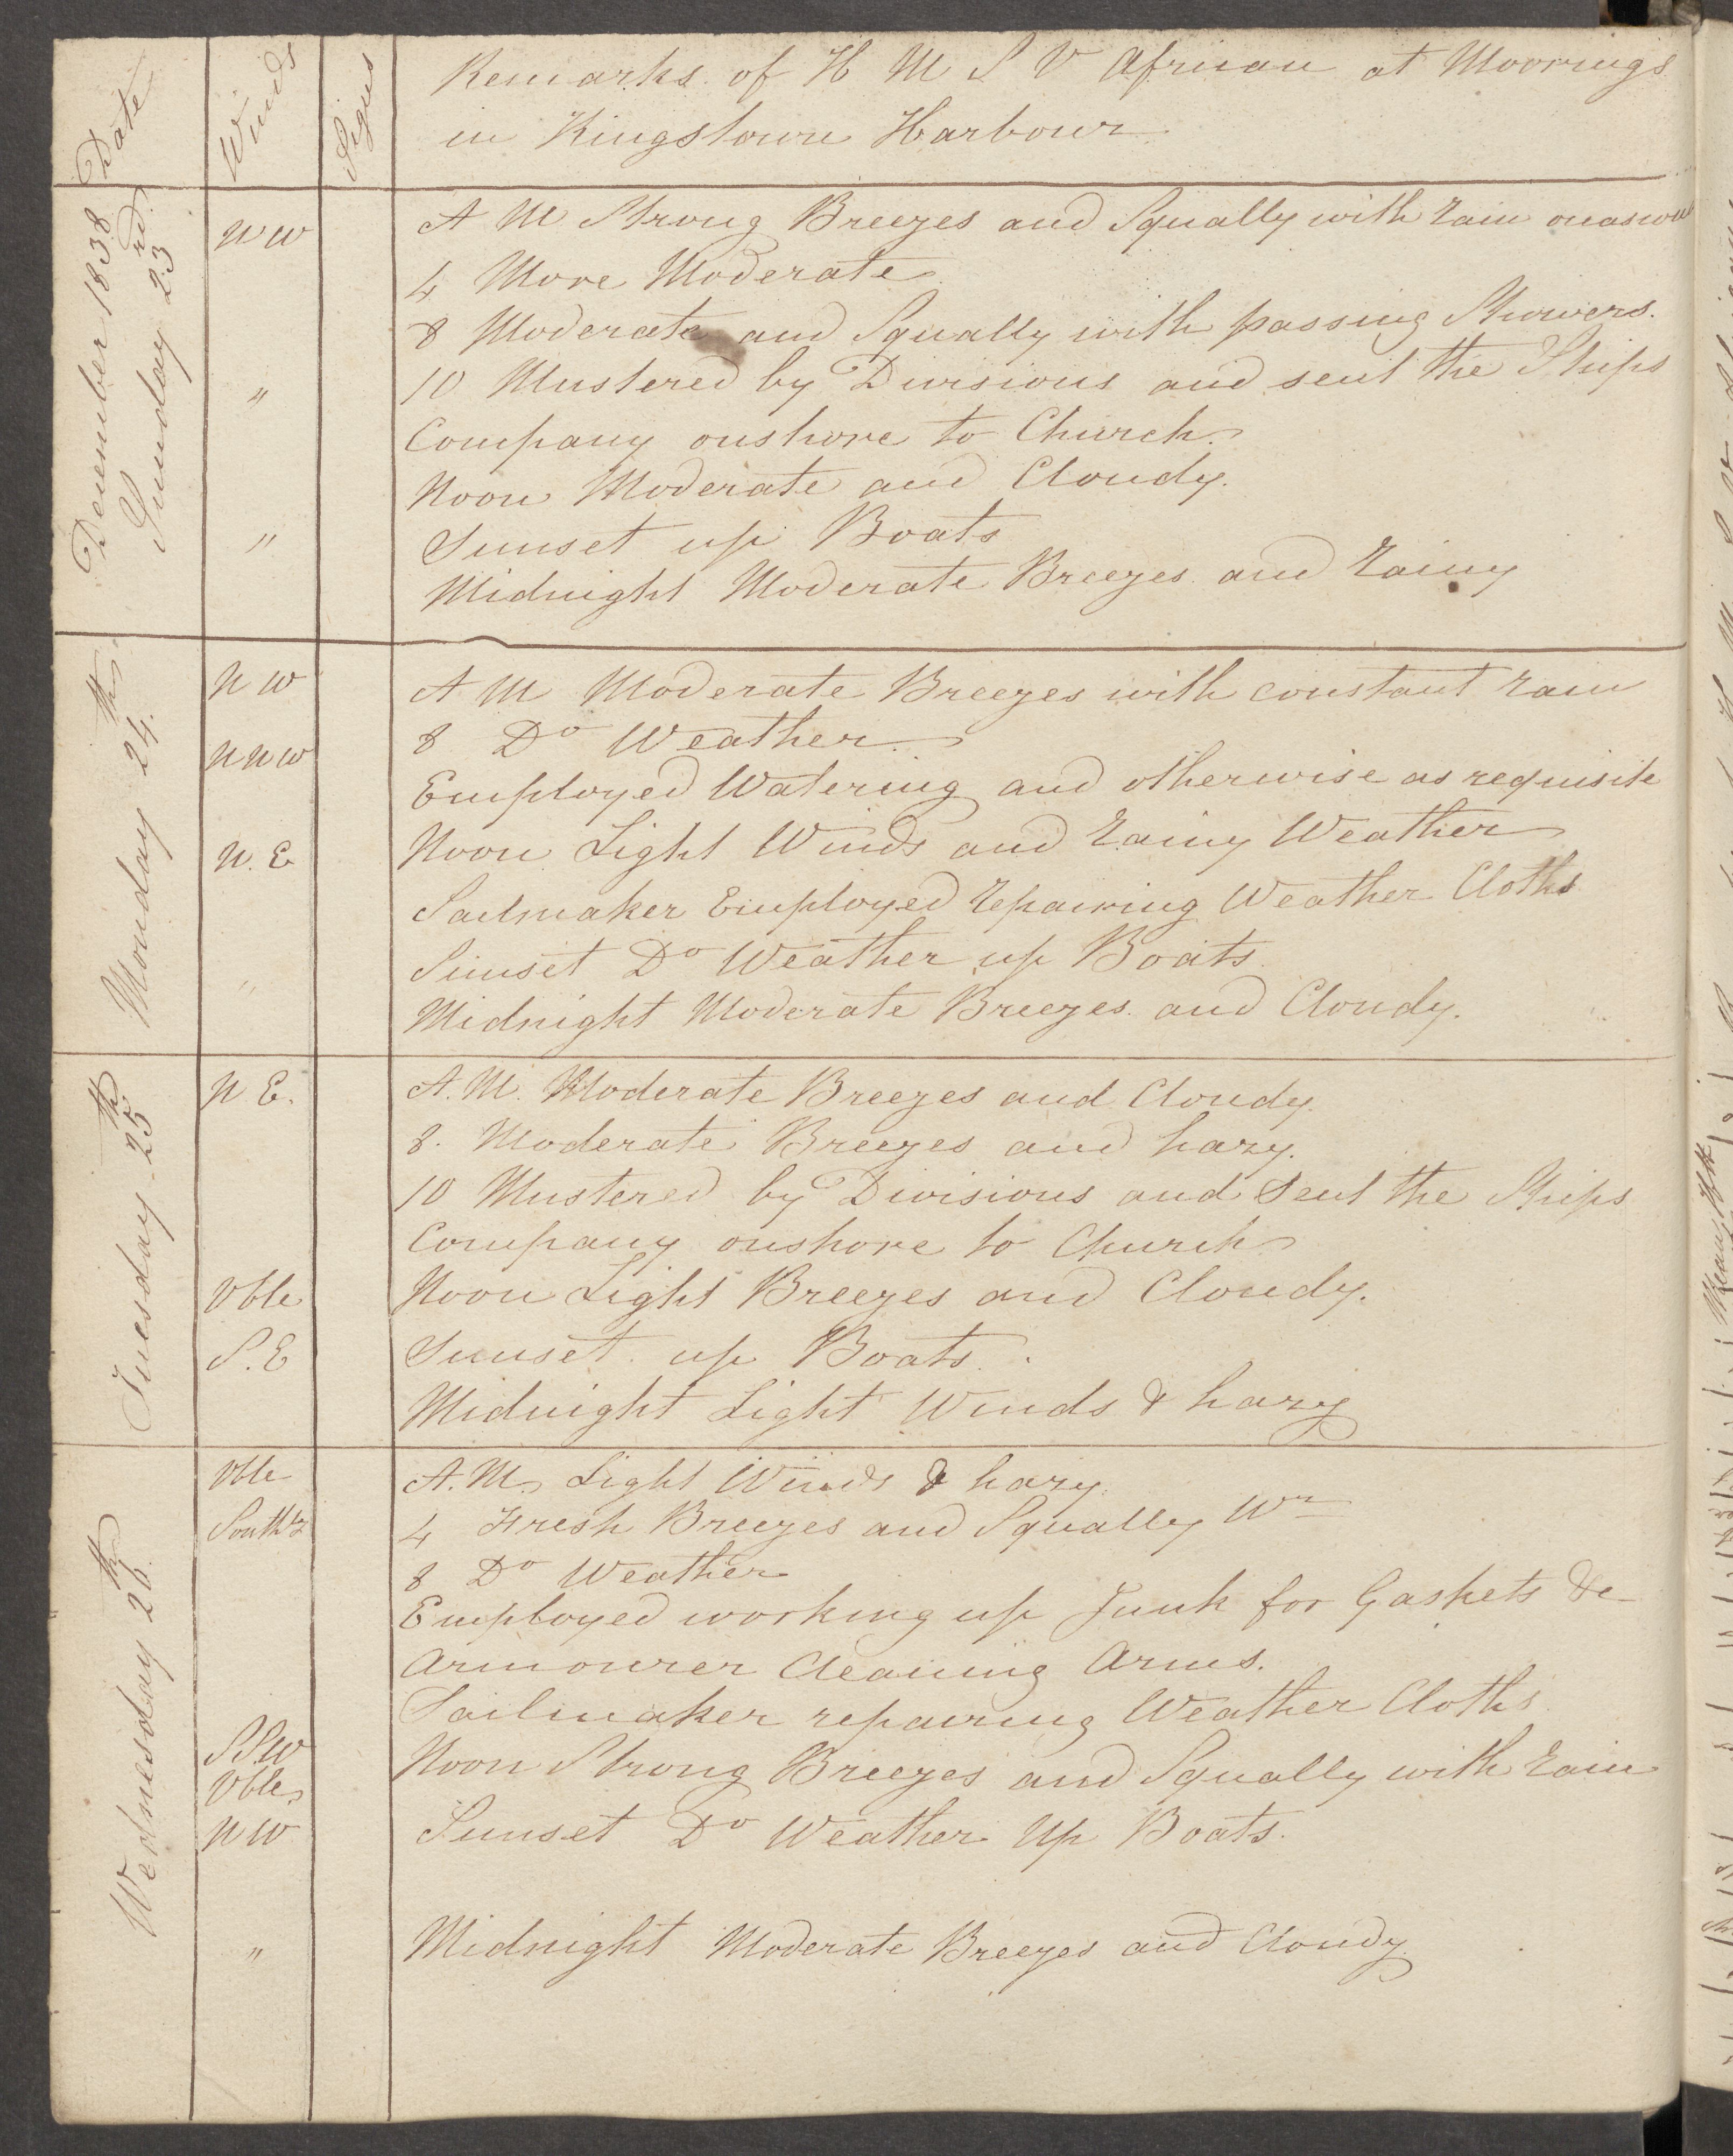 Date
Winds
Signs
Remarks of H M S V African at Moorings
in Kingstown Harbour
December 1838
Sunday 23rd
NW
"
"
A M Strong Breezes and Squally with rain
4 More Moderate
8 Moderate and Squally with passing Showers.
10 Mustered by Divisions and sent the Ships
Company onshore to Church.
Noon Moderate and Cloudy.
Sunset up Boats
Midnight Moderate Breezes and rainy
Monday 24th
N W
N N W
N. E
"
A M Moderate Breezes with constant rain
8 Do Weather
Employed Watering and otherwise as requisite
Noon Light Winds and rainy Weather
Sailmaker Employed repairing Weather Cloths
Sunset Do Weather up Boats
Midnight Moderate Breezes and Cloudy.
Tuesday 25th
N E.
Vble
S. E
A. M. Moderate Breezes and Cloudy.
8. Moderate Breezes and hazy.
10 Mustered by Divisions and Sent the Ships
Company onshore to Church
Noon Light Breezes and Cloudy.
Sunset up Boats.
Midnight Light Winds & hazy
Wednesday 26th
Vble
SSW
Vble
NW
"
A. M. Light Winds & hazy
4 Fresh Breezes and Squally Wr
8 Do Weather
Employed working up Junk for Gaskets &c
Armourer Cleaning Arms.
Sailmaker repairing Weather Cloths
Noon Strong Breezes and Squally with rain
Sunset Do Weather Up Boats.
Midnight Moderate Breezes and Cloudy